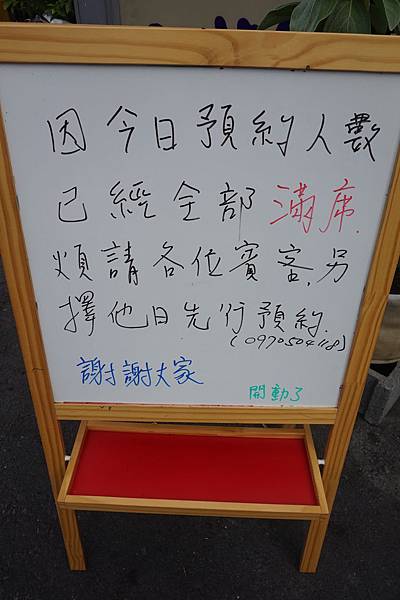 因今日預約人數
已經全部滿席.
煩請各位賓客,另
擇他日先行預約.
(0970504118)
謝謝大家
開動了